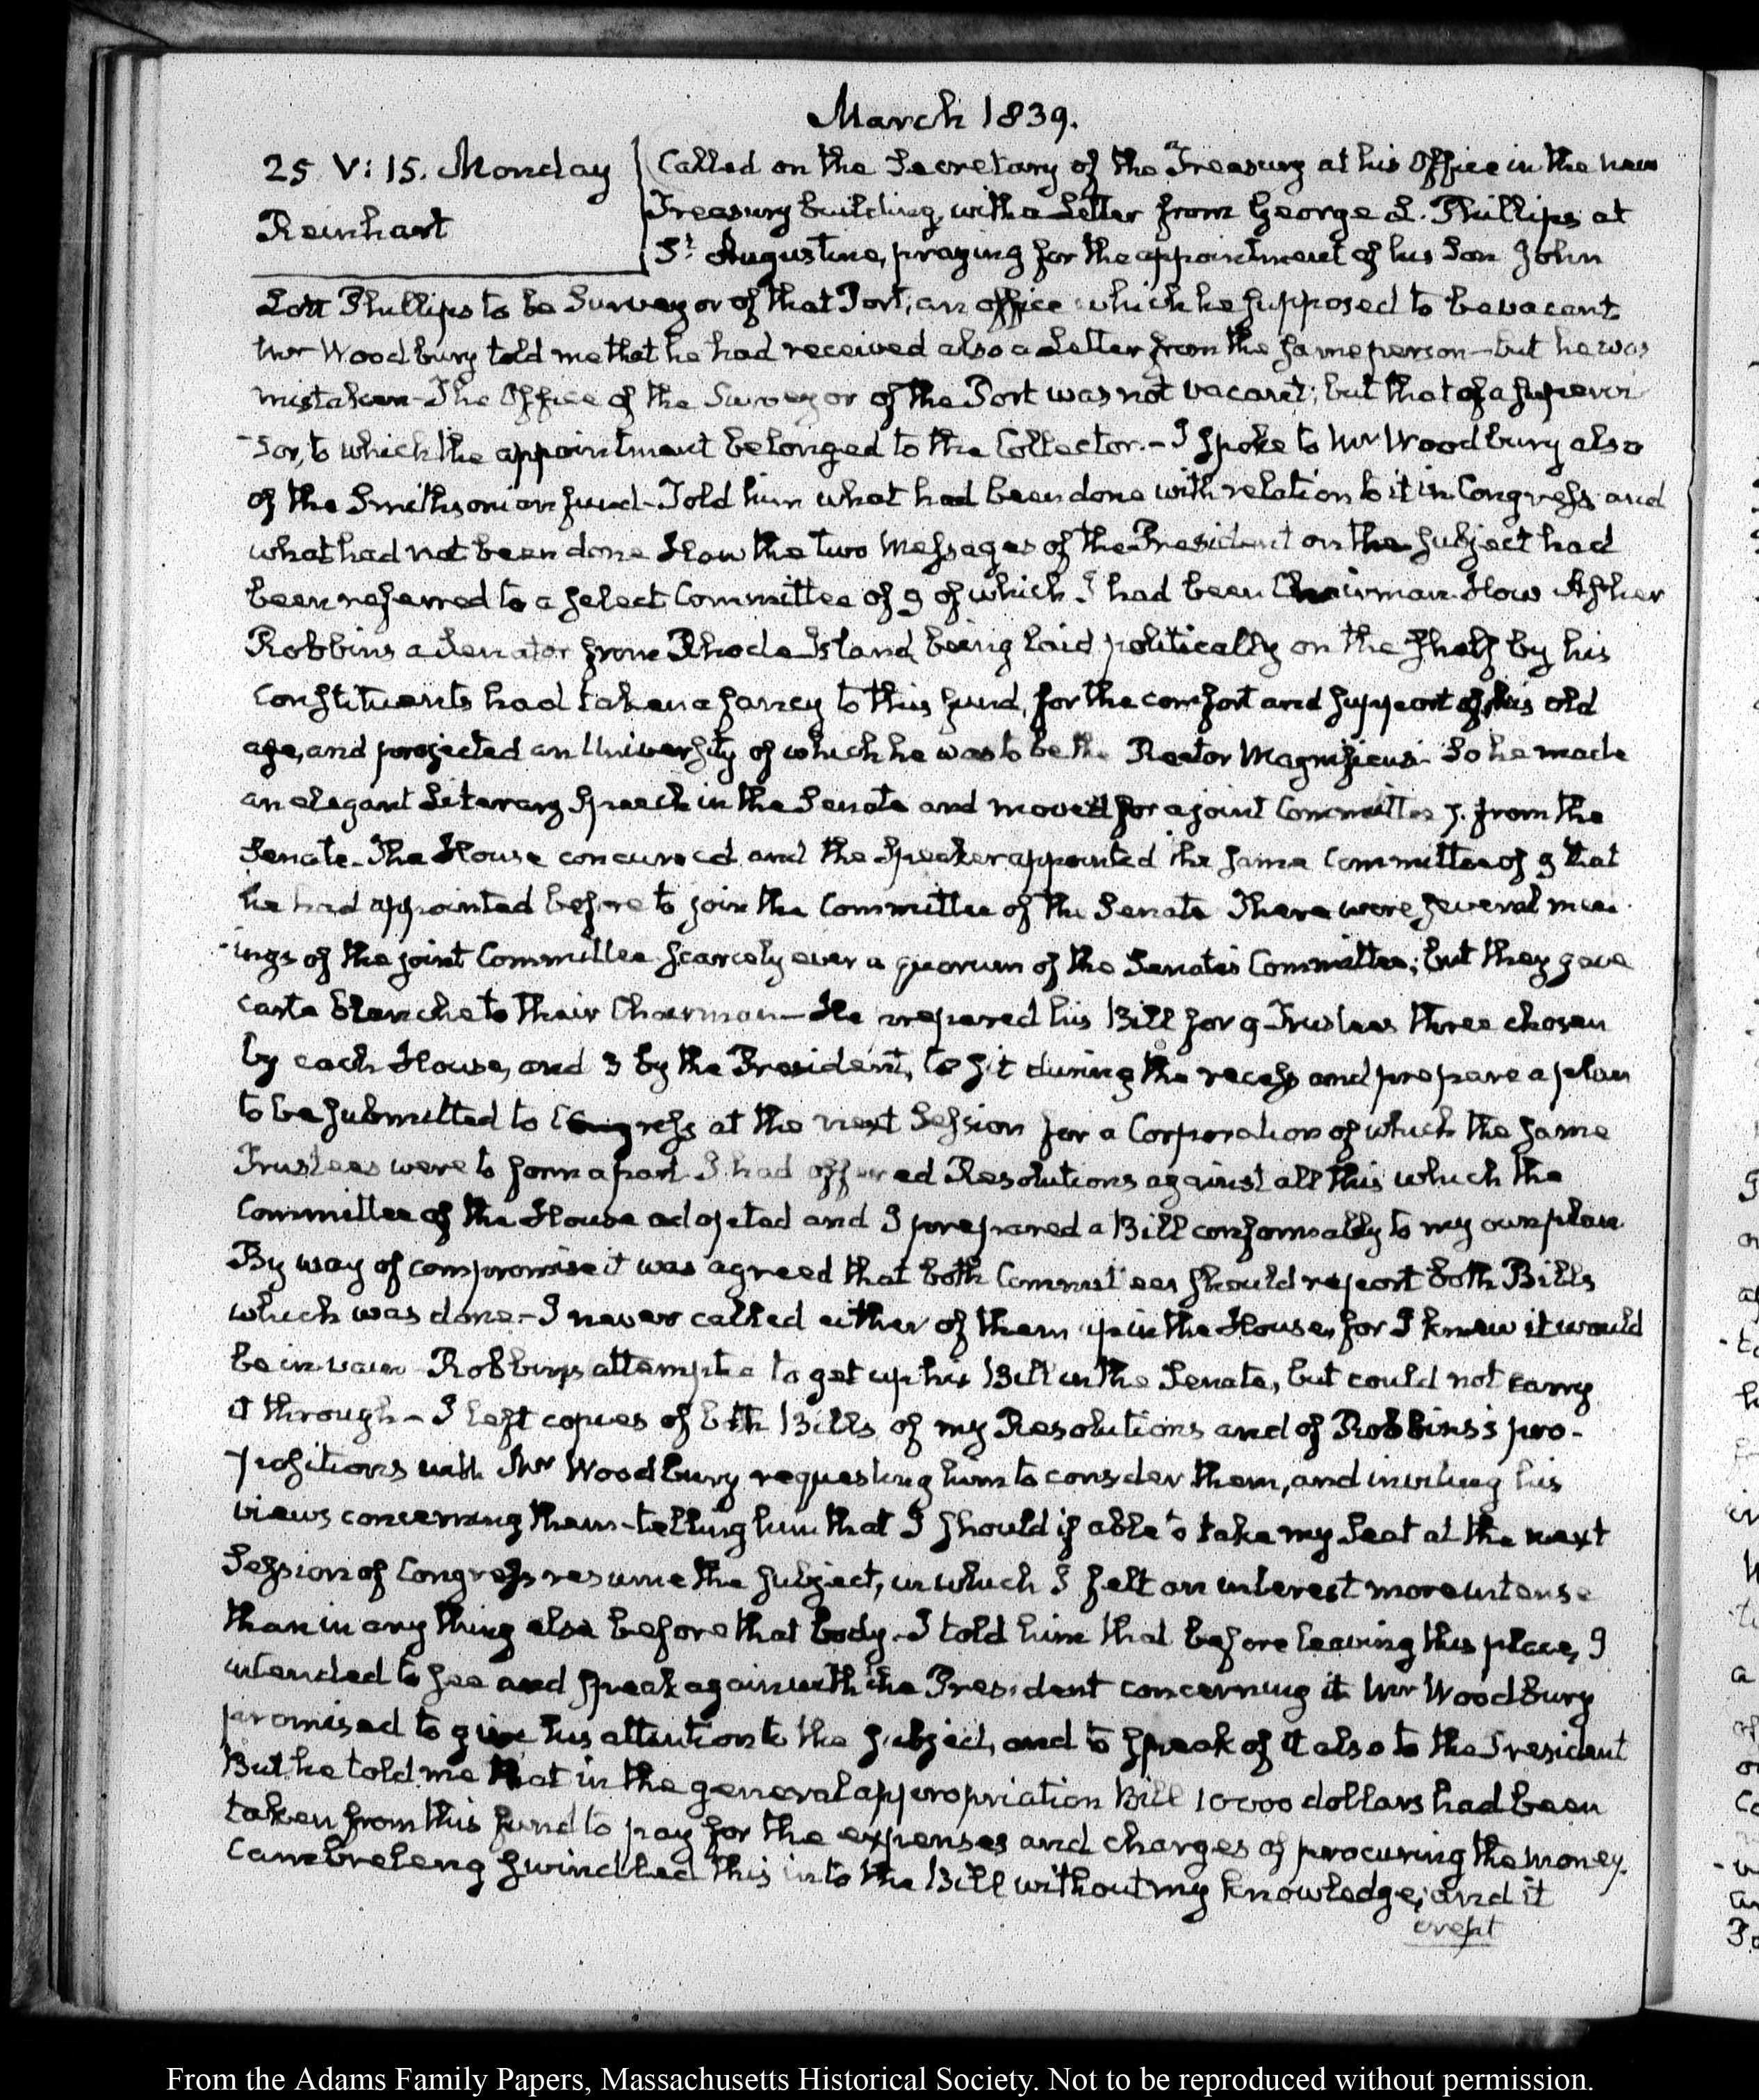 March 1839.
25 V: 15. Monday
Reinhart
Called on the Secretary of the Treasury at his Office in the new
Treasury building, with a Letter from George L. Phillips at
St. Augustine, praying for the appointment of his Son John
Lott Phillips to be Surveyor of that Port; an office which he supposed to be vacant
Mr Woodbury told me that he had received also a Letter from the same person—but he was
mistaken—The Office of the Surveyor of the Port was not vacant; but that of a supervi
-sor, to which the appointment belonged to the Collector.—I spoke to Mr Woodbury also
of the Smithsonian fund—Told him what had been done with relation to it in Congress and
what had not been done How the two Messages of the President on the subject had
been referred to a select Committee of 9 of which I had been Chairman. How Asher
Robbins a Senator from Rhode Island, being laid politically on the shelf by his
Constituents had taken a fancy to this fund, for the comfort and support of his old
age, and projected an University of which he was to be the Rector Magnificus. So he made
an elegant Literary Speech in the Senate and moved for a joint Committee 7. from the
Senate. The House concurred and the Speaker appointed the same Committee of 9 that
he had appointed before to join the Committee of the Senate There were several mee
-ings of the joint Committee scarcely ever a quorum of the Senate's Committee; but they gave
carte blanche to their Chairman—He prepared his Bill for 9 Trustees three chosen
by each House, and 3 by the President, to sit during the recess and prepare a plan
to be submitted to Congress at the next Session for a Corporation of which the same
Trustees were to form a part. I had offered Resolutions against all this which the
Committee of the House adopted and I prepared a Bill conformably to my own plan
By way of compromise it was agreed that both Committees should report both Bills
which was done—I never called either of them up in the House, for I knew it would
be in vain Robbins attempted to get up his Bill in the Senate, but could not carry
it through—I left copies of both Bills, of my Resolutions and of Robbins's pro-
-positions with Mr Woodbury requesting him to consider them, and inviting his
views concerning them—telling him that I should if able to take my Seat at the next
Session of Congress resume the subject, in which I felt an interest more intense
than in any thing else before that body. I told him that before leaving this place, I
intended to see and speak again with the President concerning it Mr Woodbury
promised to give his attention to the subject, and to speak of it also to the President
But he told me that in the general appropriation Bill 10000 dollars had been
taken from this fund to pay for the expenses and charges of procuring the money.
Cambreleng swindled this into the Bill without my knowledge; and it
crept
From the Adams Family Papers, Massachusetts Historical Society. Not to be reproduced without permission.